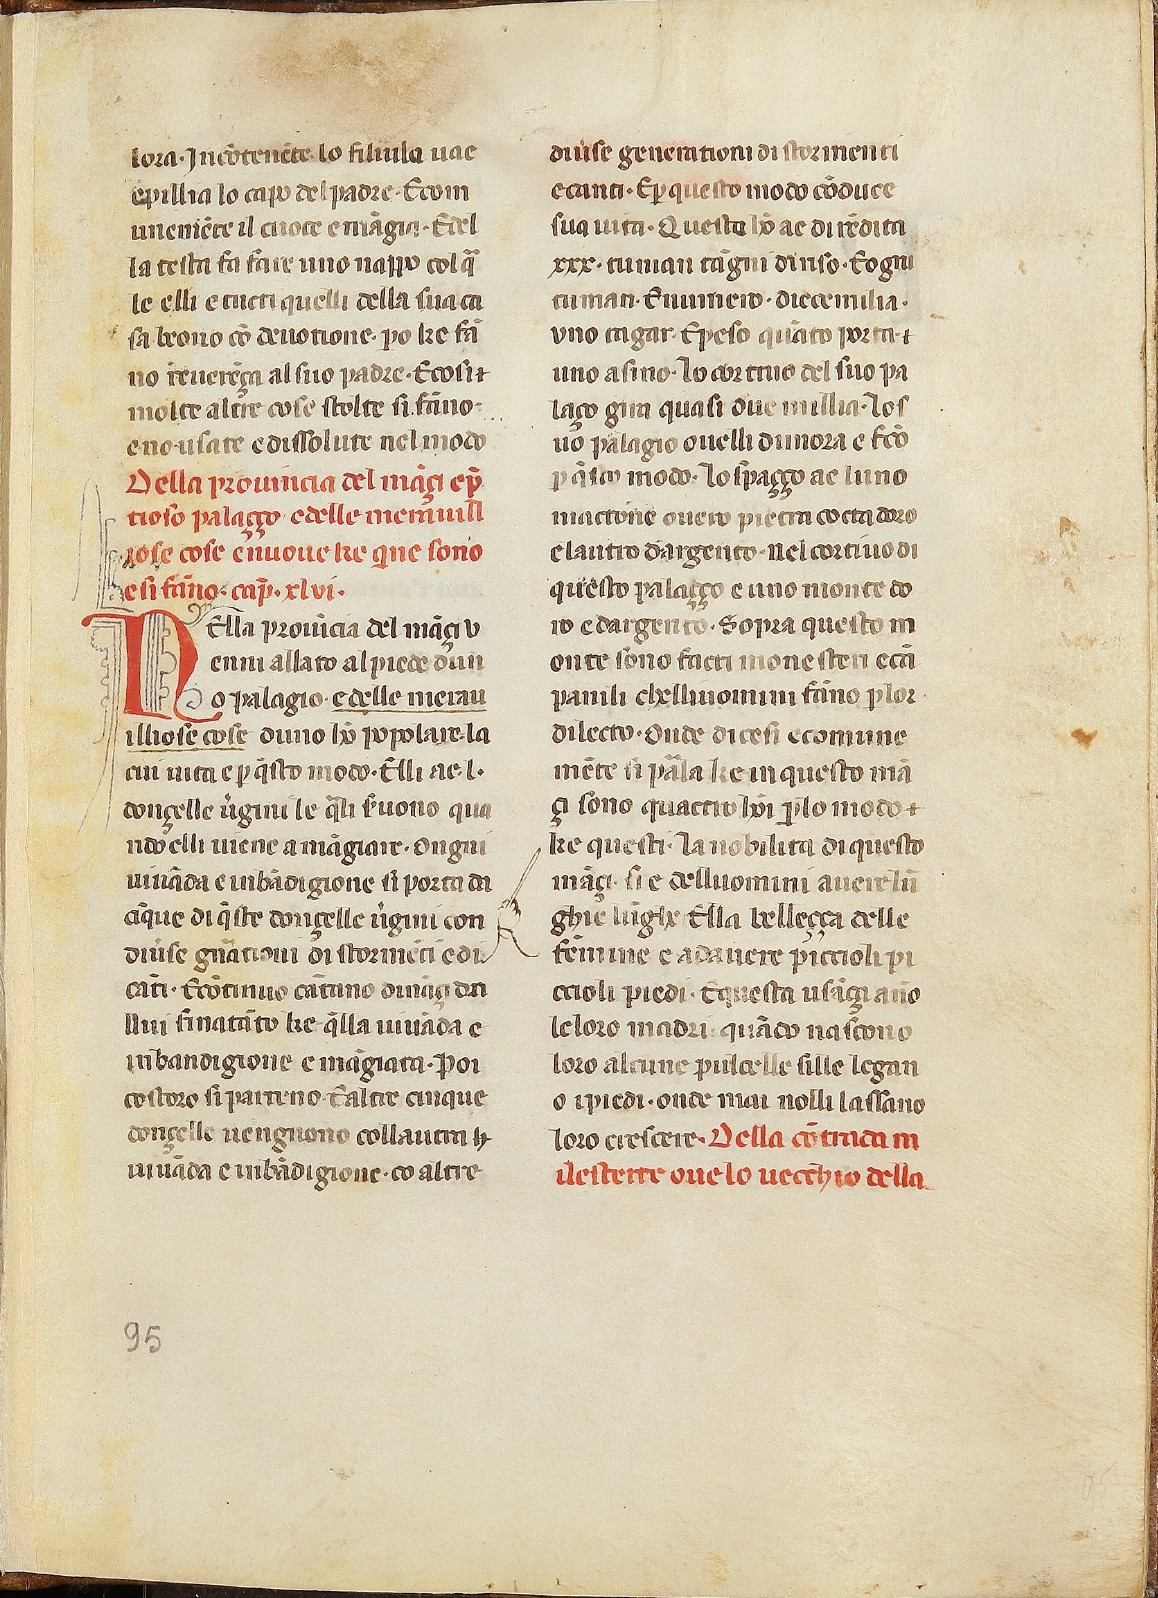 lora · Incōtenēte lo filiulo uae
epillia lo capo del padre · Ecom
uneniēte il cuoce e māgia · Edel
la testa fa fare uno nappo col q̄
le elli e tucti quelli della sua ca
sa beono cō deuotione · po ke fā
no reuerēça al suo padre · Ecosi ⁊
molte altre cose stolte si fāno ·
e no usate e dissolute nel modo
Della prouincia del māçi e p̄
tioso palaçço e delle merauill
iose cose e nuoue ke que sono
e si fāno · cap̄ · xlvi ·
NElla prouīcia del māçi v
enni allato al piede dun
o palagio e delle merau
illiose cose duno hō popolare · la
cui uita e p q̄sto modo · Elli ae · l ·
donçelle ūgini le q̄li seruono qua
ndo elli uiene a māgiare · Ongni
uiuāda e inbādigione si porta da
cīque di q̄ste donçelle ūgini con
diuise gn̄ationi di stormēti e di
cāti · Ecōtinuo cātano dināçi da
llui sinatāto ke q̄lla uiuāda e
inbandigione e māgiata · Poi
costoro si parteno · Ealtre cinque
donçelle uengnono collautra
uiuāda e inbādigione · co altre
diuise generationi di stormenti
e canti · Ep questo modo cōduce
sua uita · Questo hō ae di rēdita
xxx · tuman tāgni diriso · E ogni
tuman · E numero · diecemilia ·
vno tagar · Epeso quāto porta ⁊
uno asino · lo cortiuo del suo pa
laço gira quasi due millia · lo s
uo palagio ouelli dimora e fcō
p q̄sto modo · lo spaçço ae luno
mactone ouero pietra cocta doro
e lautro dargento · Nel cortiuo di
questo palaçço e uno monte do
ro e dargento · Sopra questo m
onte sono facti monesteri e cā
panili chelliuomini fāno p lor
dilecto · Onde dicesi e comune
mēte si parla ke in questo mā
çi sono quactro hōi p lo modo ⁊
ke questi · la nobilita di questo
māçi · si e delluomini auere lū
ghie lūghe Ella belleçça delle
femine e ad auere piccioli pi
ccioli piedi · Equesta usāça āno
le loro madri · quādo nascono
loro alcune pulcelle sille legan
o i piedi · onde mai nolli lassano
loro crescere · Della cōtrada m
ilesterre oue lo uecchio della
95